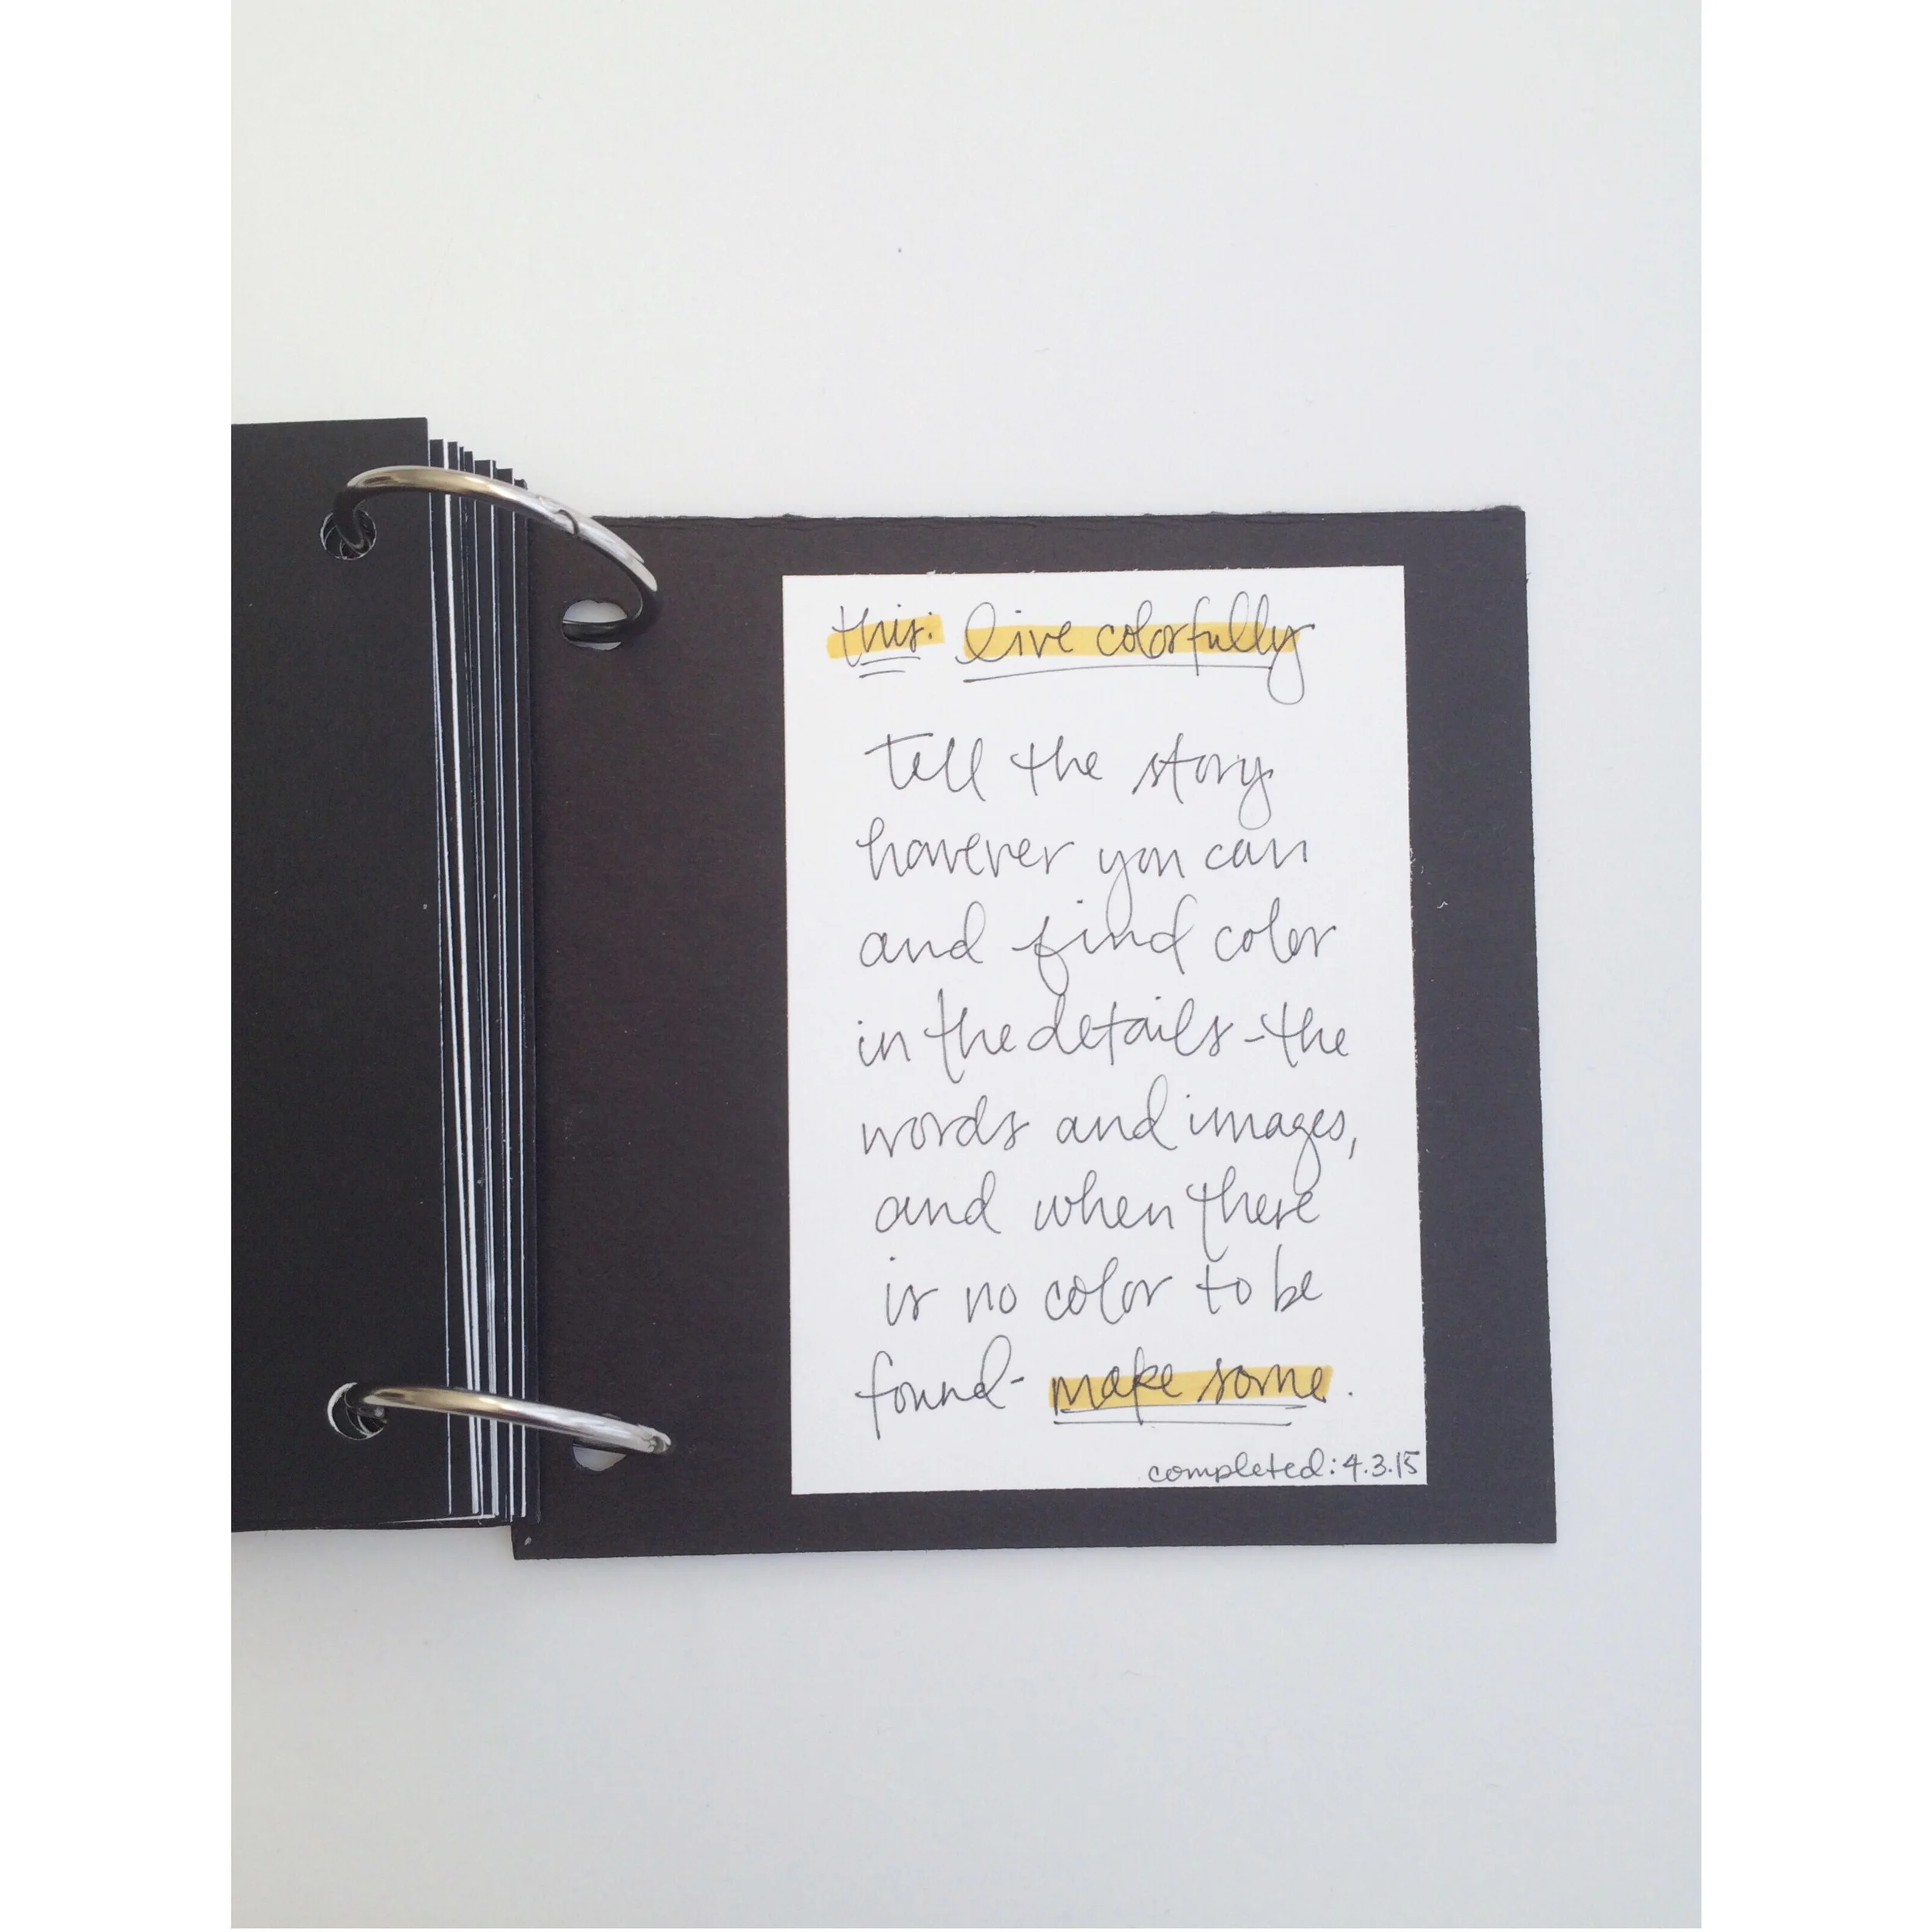 this: live colorfully
tell the story
however you can
and find color
in the details - the
words and images,
and when there
is no color to be
found - make some.
completed: 4.3.15